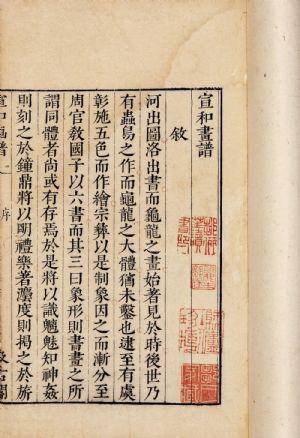 宣和畫譜
敘
河出圖洛出書而龜龍之畫始著見於時後世乃
有蟲鳥之作而龜龍之大體猶未鑿也逮至有虞
彰施五色而作繪宗彝以是制象因之而漸分至
周官教國子以六書而其三曰象形則書畫之所
謂同體者尚或有存焉於是將以識魑魅知神姦
則刻之於鐘鼎將以明禮樂著灋度則揭之於旂
宣和畫譜 序